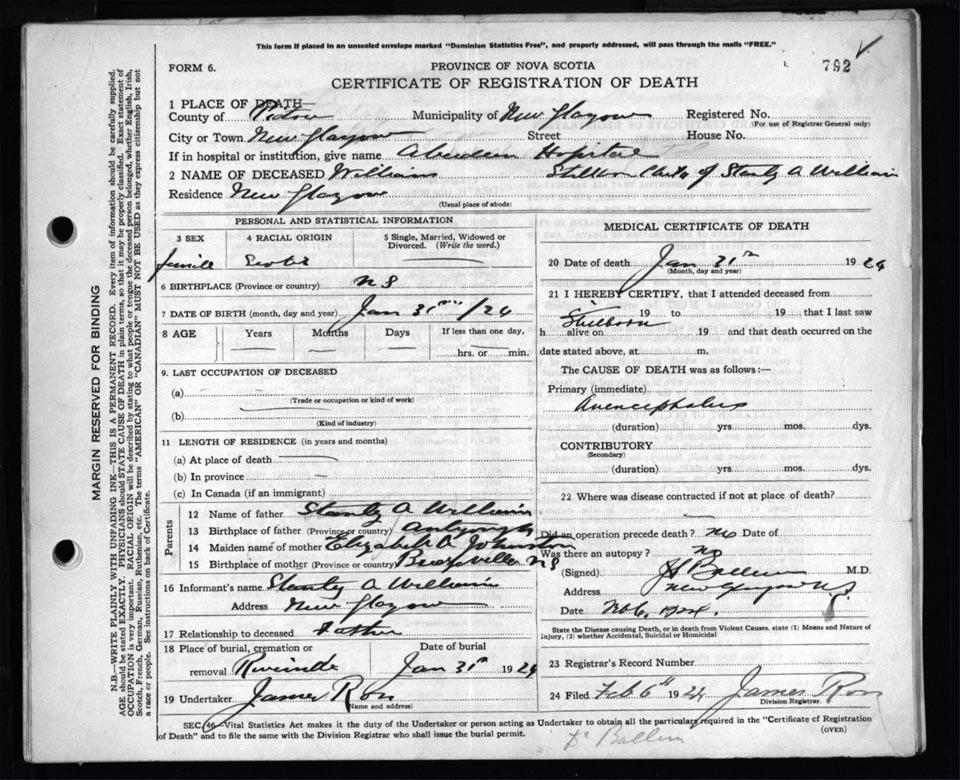 This form if placed in an unsealed envelope marked "Dominion Statistics Free", and properly addressed, will pass through the mails "FREE."
792
FORM 6.
PROVINCE OF NOVA SCOTIA
CERTIFICATE OF REGISTRATION OF DEATH
1 PLACE OF DEATH—
County of Pictou Municipality of New Glasgow Registered No.
(For use of Registrar General only)
City or Town New Glasgow Street House No.
If in hospital or institution, give name Aberdeen Hospital
2 NAME OF DECEASED Williams Stillborn Child of Stanley A William
Residence New Glasgow
(Usual place of abode)
PERSONAL AND STATISTICAL INFORMATION
3 SEX 4 RACIAL ORIGIN 5 Single, Married, Widowed or Divorced. (Write the word.)
Scotch
6 BIRTHPLACE (Province or country) N S
7 DATE OF BIRTH (month, day and year) Jan 31 /24
8 AGE Years Months Days If less than one day,
hrs. or min.
9. LAST OCCUPATION OF DECEASED
(a)
(Trade or occupation or kind of work)
(b)
(Kind of industry)
11 LENGTH OF RESIDENCE (in years and months)
(a) At place of death
(b) In province
(c) In Canada (if an immigrant)
Parents
12 Name of father Stanley A William
13 Birthplace of father (Province or country)
14 Maiden name of mother Elizabeth A Johnston
15 Birthplace of mother (Province or country) NS
16 Informant's name Stanley A William
Address New Glasgow
17 Relationship to deceased Father
18 Place of burial, cremation or Date of burial
removal Riverside Jan 31st 1924
19 Undertaker James Ross
(Name and address)
MEDICAL CERTIFICATE OF DEATH
20 Date of death Jan 31st 1924
(Month, day and year)
21 I HEREBY CERTIFY, that I attended deceased from
19 to 19 that I last saw
Stillborn
h alive on 19 and that death occurred on the
date stated above, at m.
The CAUSE OF DEATH was as follows:—
Primary (immediate)
Anencephalus
(duration) yrs mos. dys.
CONTRIBUTORY
(Secondary)
(duration) yrs. mos. dys.
22 Where was disease contracted if not at place of death?
Did an operation precede death? No Date of
Was there an autopsy? No
(Signed) M.D.
Address New Glasgow NS
Date Feb 6, 1924.
State the Disease causing Death, or in death from Violent Causes. state (1) Means and Nature of
injury, (2) whether Accidental, Suicidal or Homicidal
23 Registrar's Record Number
24 Filed Feb 6th 1924 James Ross
Division Registrar.
SEC. 46-Vital Statistics Act makes it the duty of the Undertaker or person acting as Undertaker to obtain all the particulars required in the "Certificate of Registration
of Death" and to file the same with the Division Registrar who shall issue the burial permit.
(OVER)
MARGIN RESERVED FOR BINDING
N.B.—WRITE PLAINLY WITH UNFADING INK—THIS IS A PERMANENT RECORD. Every item of information should be carefully supplied.
AGE should be stated EXACTLY. PHYSICIANS should STATE CAUSE OF DEATH in plain terms, so that it may be properly classified. Exact statement of
OCCUPATION is very important. RACIAL ORIGIN will be described by stating to what people or tongue the deceased person belonged, whether English, Irish,
Scotch, French, German, Russian, Ruthenian, etc. The terms "AMERICAN" OR "CANADIAN" MUST NOT BE USED as they express citizenship but not
a race or people. See instructions on back of Certificate.